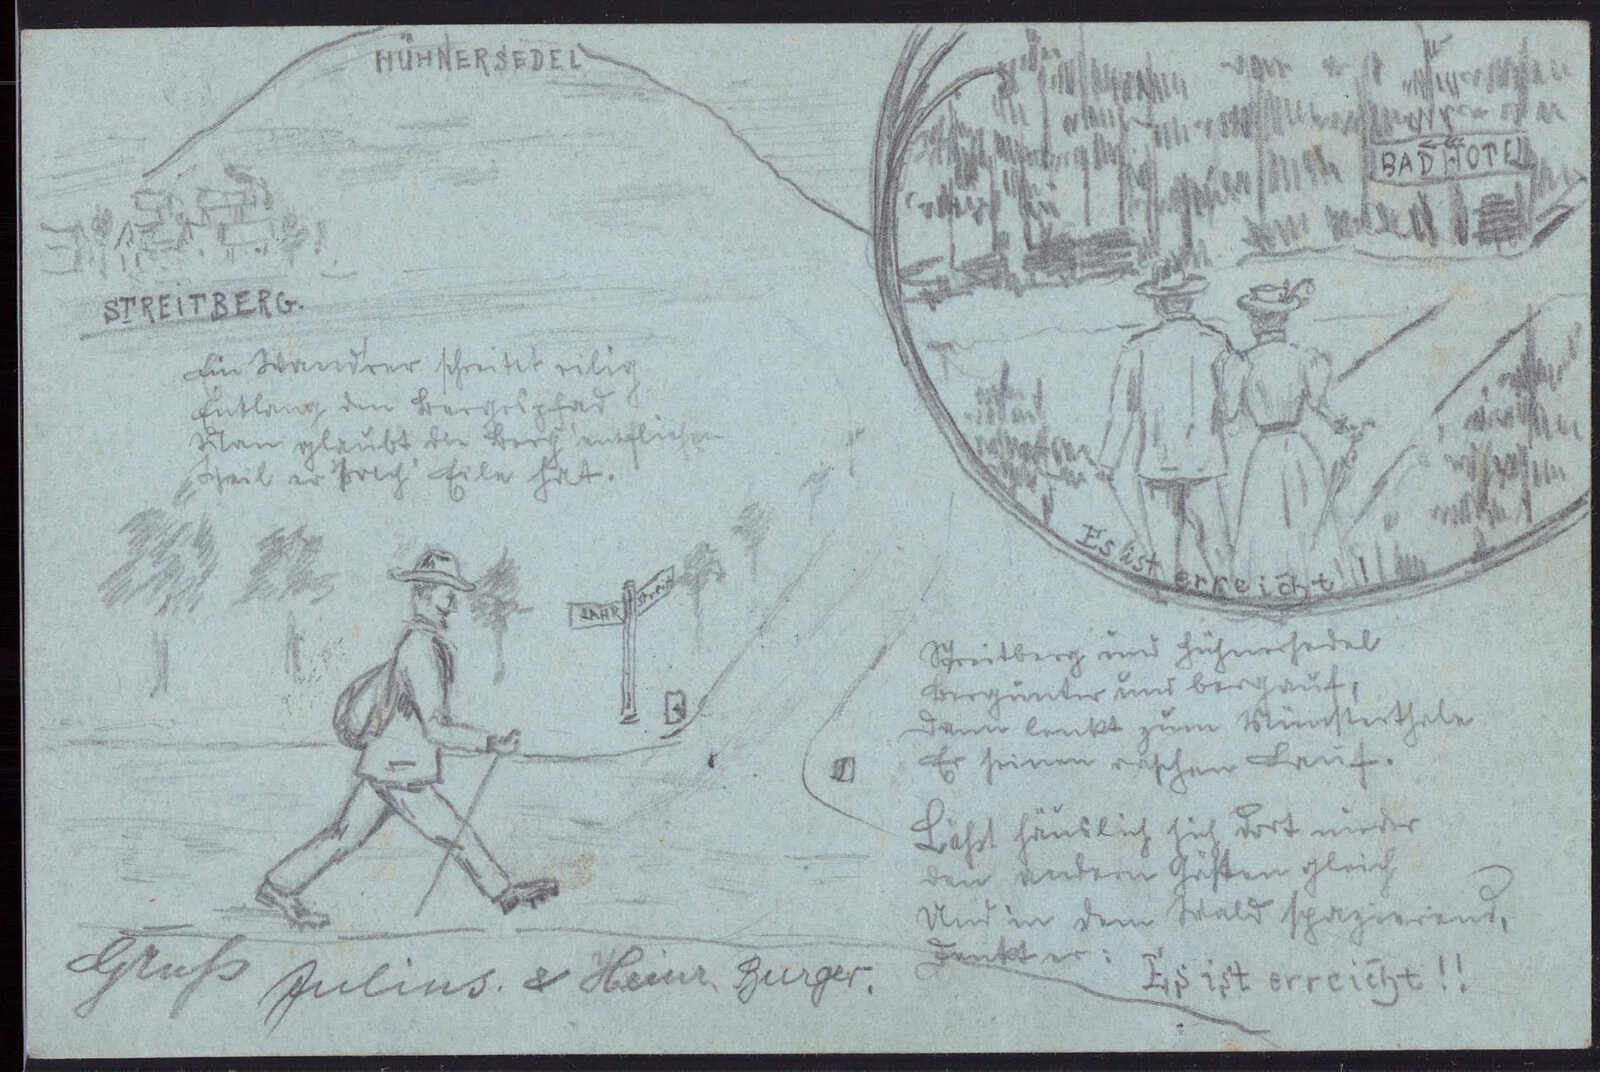 HÜHNERSEDEL
BAD HOTEL
STREITBERG.
Ein Wandrer schreitet eilig
Entlang den Bergespfad
Man glaubt die Berg' entfliehen
Weil er solch' Eile hat.
LAHR
Streit
Es ist erreicht!!
Streitberg und Hühnersedel
Bergunter und bergauf,
Dann lenkt zum Münsterthale
Er seinen raschen Lauf.
Läßt häuslich sich dort nieder
den andern Gästen gleich
Und in dem Wald spazierend,
Denkt er: Es ist erreicht!!
Gruß Julius. & Heinr. Burger.